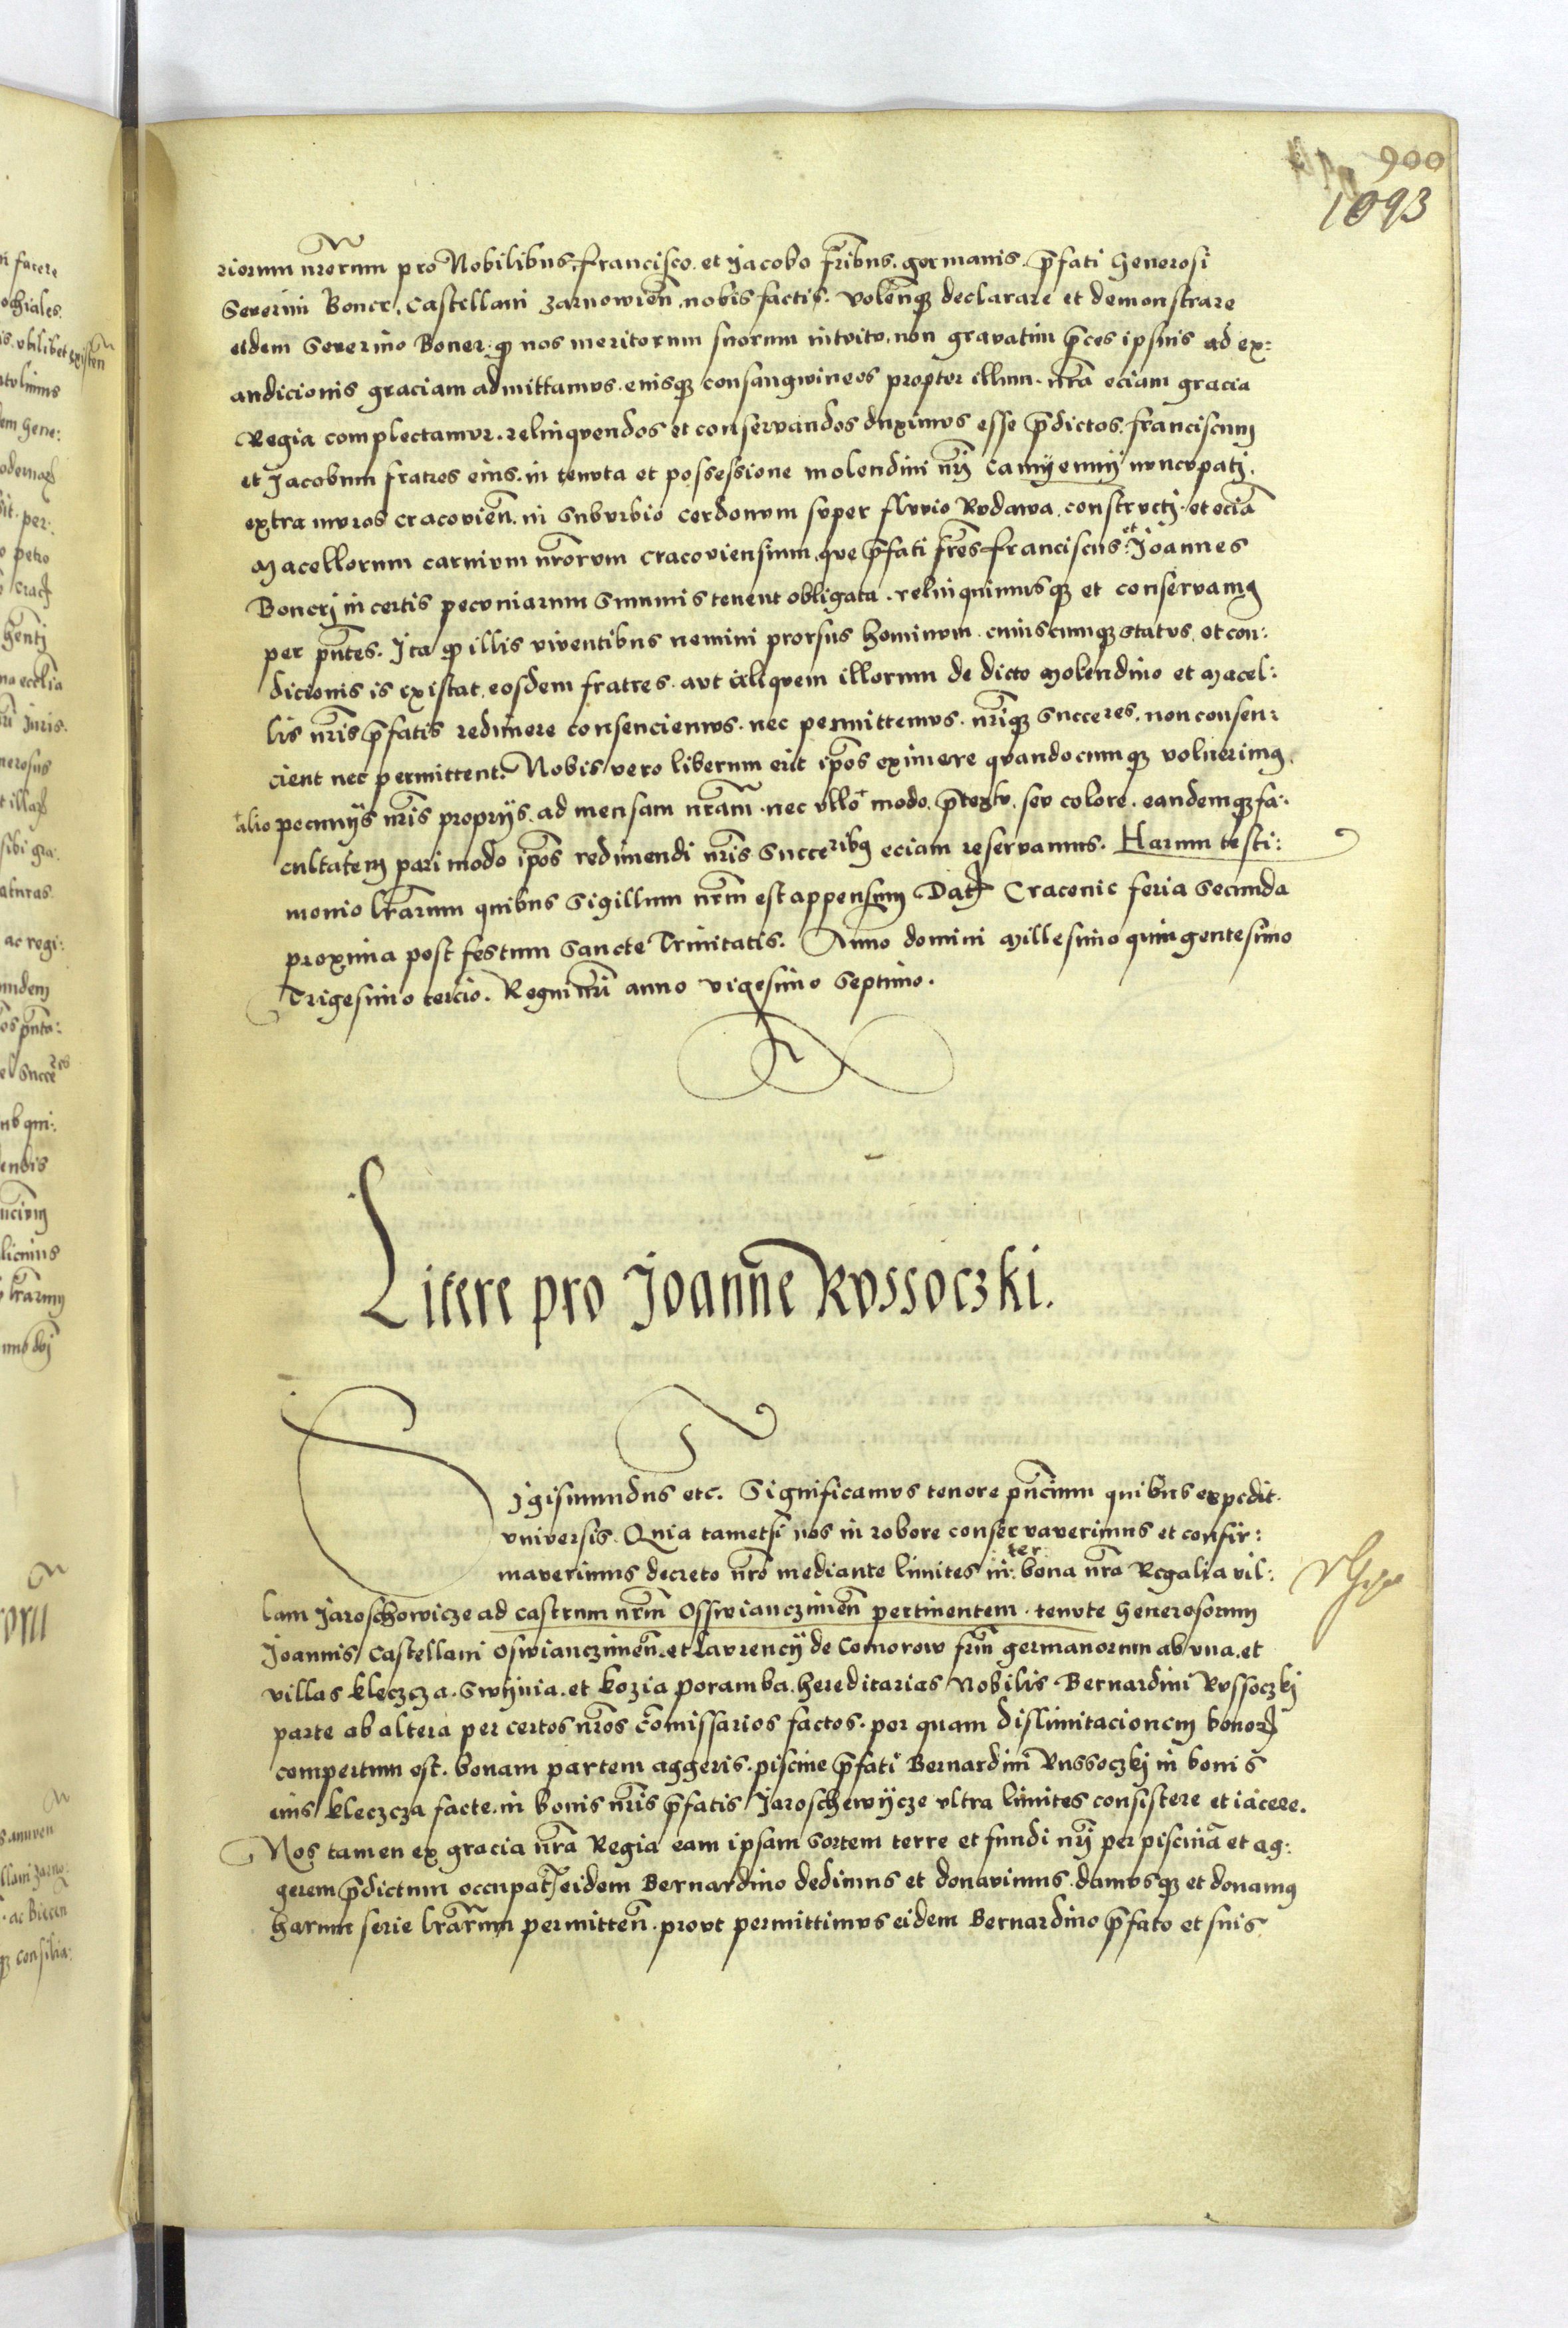 900
1093
riorum nrorum pro Nobilibus, francisco. et jacobo fribus. germanis. pfati Generosi
Severini Boner, Castellani zarnowien. nobis factis. volenqz declarare et demonstrare
eidem Severino Boner. qp nos meritorum suorum intvitv, non gravatim pces ipsius ad ex:
audicionis graciam admittamvs. eiusqz consangwineos propter illum. nra eciam gracia
Regia complectamvr. relinqvendos et conservandos duximvs esse pdictos. franciscum
et Jacobum fratres eius. in tenvta et possessione molendini nrj Camyennij nvncvpatj.
extra mvros cracovien. in Svbvrbio cerdonvm svper flvvio Rvdawa. constrvctj. et ecia
Macellorum carnivm nrorvm Cracoviensium. qve pfati fres franciscus: et Joannes
Bonerj in certis pecvniarum Summis tenent obligata. relinquimusqz et conservamq
per pntes. Ita qp illis viventibus nemini prorsus hominvm. cuiuscumqz Statvs. et con:
dicionis is existat. eosdem fratres. avt aliqvem illorum de dicto Molendino et Macel:
lis nris pfatis redimere consenciemvs. nec permittemvs. nriqz Succeres. non consen:
cient nec permittent. Nobis vero liberum erit ipos eximere qvandocumqz volverimq.
pecunijs nris proprijs. ad mensam nram. nec vllo + modo. ptextv. sev colore. eandemqz fa:
+ alio
cultatem pari modo ipos redimendi nris Succeribq eciam reservamus. Harum testi:
monio lrarum quibus Sigillum nrm est appensum. Dat Cracovie feria Secunda
proxima post festum Sancte Trinitatis. Anno domini Millesimo quingentesimo
Trigesimo tercio. Regni nri anno vigesimo Septimo.
Litere pro Joanne Rvssoczki.
Sigismundus etc. Significamvs tenore pncium quibus expedit.
vniversis. Quia tametsi nos in robore conservaverimus et confir:
maverimus decreto nro mediante limites inter bona nra Regalia vil:
lam Jaroschowicze ad castrum nrm Osswianczimen pertinentem. tenvte Generosorum
Joannis Castellani Oswianczimen. et Lavrencij de Comorow frm germanorum ab vna. et
villas kleczcza. Swynia. et kozia poramba. hereditarias Nobilis. Bernardini Rvssoczkj
parte ab altera per certos nros comissarios factos. per quam dislimitacionem bonor
compertum est. bonam partem aggeris. piscine pfati Bernardini Russoczkj in bonis
eius kleczcza facte. in bonis nris pfatis Jaroschewycze vltra limites consistere et iacere.
Nos tamen ex gracia nra Regia eam ipsam Sortem terre et fundi nrj per piscina et ag:
gerem pdictum occupat eidem Bernardino dedimus et donavimus. damvsqz et donamq
harum serie lrarum permitten. provt permittimvs eidem Bernardino pfato et suis